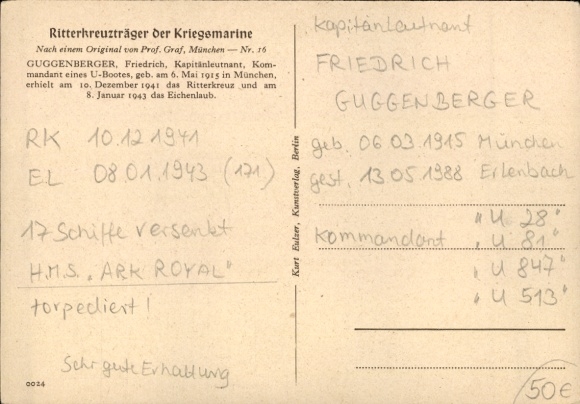 Ritterkreuzträger der Kriegsmarine
Nach einem Original von Prof. Graf, München — Nr. 16
GUGGENBERGER, Friedrich, Kapitänleutnant, Kom-
mandant eines U-Bootes, geb. am 6. Mai 1915 in München,
erhielt am 10. Dezember 1941 das Ritterkreuz und am
8. Januar 1943 das Eichenlaub.
RK 10.12 1941
EL 08.01.1943 (171)
17 Schiffe versenkt
H.M.S. „ARK ROYAL"
torpediert!
Sehr gute Erhaltung
0024
Kurt Eulzer, Kunstverlag, Berlin
Kapitänleutnant
FRIEDRICH
GUGGENBERGER
geb. 06 03.1915 München
gest. 13 05.1988 Erlenbach
"U 28"
Kommandant "U 81"
"U 847"
"U 513"
50€